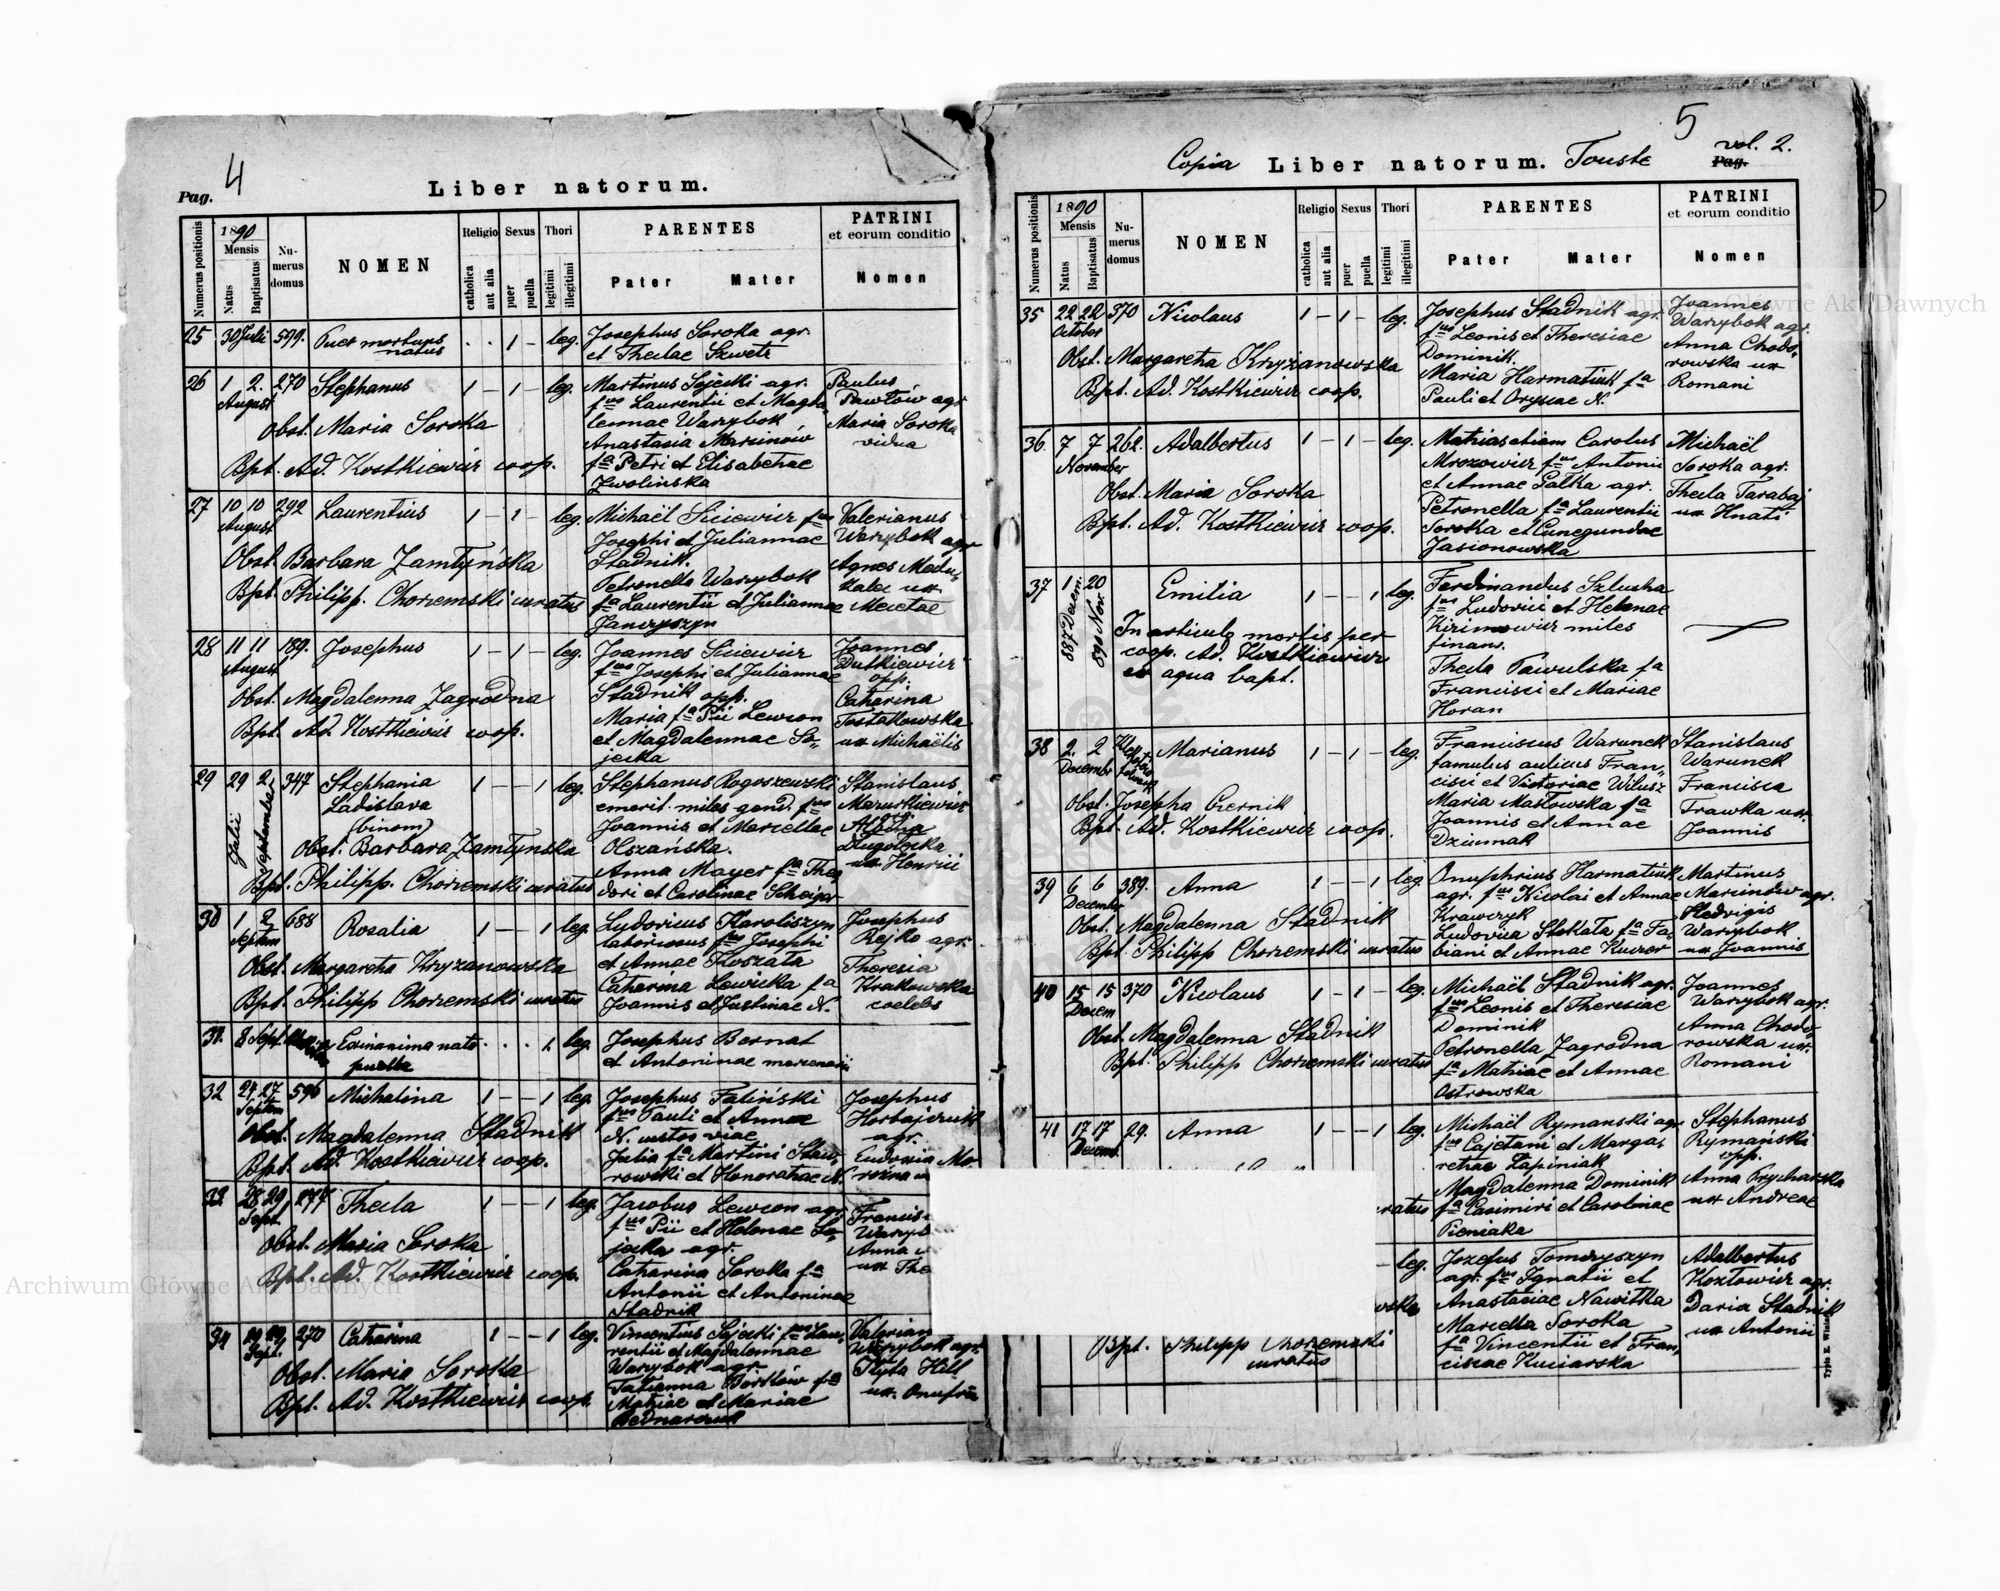 4
Pag.
Liber natorum.
Numerus positionis
1890
Mensis
Natus
Baptisatus
Nu-
merus
domus
NOMEN
Religio
catholica
aut alia
Sexus
puer
puella
Thori
legitimi
illegitimi
PARENTES
Pater Mater
PATRINI
et eorum conditio
Nomen
25 30 Juli 599. Puer mortuus
natus
1 - leg. Josephus Soroka agr.
et Theclae Szwetz
26 1 2. 270 Stephanus 1 - 1 - leg.
August
Obst. Maria Soroka
Bpt. Ad. Kostkiewicz coop.
Martinus Sajecki agr.
fus Laurentii et Magda
lennae Warybok
Anastasia Marcinów
fa Petri et Elisabethae
Zwolińska
Paulus
Pawłów agr
Maria Soroka
vidua
27 10 10 292 Laurentius 1 - 1 - leg.
August
Obst. Barbara Zamłyńska
Bpt. Philipp. Chorzemski curatus
Michaël Siciewicz fus
Josephi et Juliannae
Stadnik.
Petronella Warybok
fa Laurentii et Juliannae
Janczyszyn
Valerianus
Warybok agr
Agnes
28 11 11 189. Josephus 1 - 1 - leg.
August
Obst. Magdalenna Zagrodna
Bpt. Ad. Kostkiewicz coop.
Joannes Siciewicz
fus Josephi et Juliannae
Stadnik opp.
Maria fa Pii Lewcon
et Magdalennae Sa-
jecka
Joannes
Dutkiewicz
opp.
Catharina
Tostakowska
ux Michaëlis
29 29 2 347 Stephania 1 - - 1 leg.
Julii
September
Ladislava
(binom)
Obst. Barbara Zamłynska
Bpt. Philipp. Chorzemski curatus
Stephanus Rogoszewski
emerit. miles gend. fus
Joannis et Marcellae
Olszańska.
Anna Mayer fa Theo
dori et Carolinae Scheigar
Stanislaus
Mazurkiewicz
Albina
Długołęcka
ux Henrici
30 1 2 688 Rosalia 1 - - 1 leg
Septem
Obst. Margaretha Kryzanowska
Bpt. Philipp Chorzemski curatus
Ludovicus Karoliszyn
laboriosus fus Josephi
et Annae Koszata
Catharina Lewicka fa
Joannis et Justinae N.
Josephus
Rejko agr.
Theresia
Krakowska
coelebs
31. 8 Sept. Exinanima nata
puella
1 leg.
Josephus Bernat
et Antoninae
32 24 27 596 Michalina 1 - - 1 leg
Septem
Obst. Magdalenna Stadnik
Bpt. Ad. Kostkiewicz coop.
Josephus Faliński
fus Pauli et Annae
N. custos viae
Julia fa Martini Staw,
rowski et Honorathae N.
Josephus
Horbajczuk
agr.
Eudoxia
33 28 29 277 Thecla 1 - - 1 leg.
Sept.
Obst. Maria Soroka
Bpt. Ad. Kostkiewicz coop.
Jacobus Lewcon agr
fus Pii et Helenae Sa-
jecka agr.
Catharina Soroka fa
Antonii et Antoninae
Stadnik
Francis
Waryb
Anna
ux The
34 29 29 270 Catharina 1 - - 1 leg.
Sept.
Obst. Maria Soroka
Bpt. Ad. Kostkiewicz coop.
Vincentius Sajecki fus Lau,
rentii et Magdalennae
Warybok agr
Tatianna Borsków fa
Mathiae et Mariae
Bednarczuk
Valerian
Warybok agr.
Hill
ux. Onufrii
5
Copia Liber natorum. Touste
vol. 2.
Pag.
Numerus positionis
1890
Mensis
Natus
Baptisatus
Nu-
merus
domus
NOMEN
Religio
catholica
aut alia
Sexus
puer
puella
Thori
legitimi
illegitimi
PARENTES
Pater Mater
PATRINI
et eorum conditio
Nomen
35 22 22 370 Nicolaus 1 - 1 - leg.
October
Obst. Margaretha Kryzanowska
Bpt. Ad. Kostkiewicz coop.
Josephus Stadnik agr.
fus Leonis et Theresiae
Dominik.
Maria Harmatiuk fa
Pauli et Orysiae N.
Joannes
Warybok agr.
Anna Chodo,
rowska ux
Romani
36. 7 7 262. Adalbertus 1 - 1 - leg.
November
Obst. Maria Soroka
Bpt. Ad. Kostkiewicz coop.
Mathias etiam Carolus
Mrozowicz fus Antonii
et Annae Sałka agr.
Petronella fa Laurentii
Soroka et Cunegundae
Jasionowska
Michaël
Soroka agr.
Thecla Tarabaj
ux Hnati
37 1 20 Emilia 1 - - 1 leg.
887 Decem.
890 Nov.
In articulo mortis per
coop. Ad. Kostkiewicz
ex aqua bapt.
Ferdinandus Szlusha
fus Ludovici et Helenae
Kirimowicz miles
finans.
Thecla Pawulska fa
Francisci et Mariae
Horan
38 2. 2 Marianus 1 - 1 - leg.
Decembr
Obst. Josepha Czernik
Bpt. Ad. Kostkiewicz coop.
Franciscus Warunek
famulus aulicus Fran,
cisci et Victoriae Wilusz
Maria Masłowska fa
Joannis et Annae
Dziunnak
Stanislaus
Warunek
Francisca
Frawka ux.
Joannis
39 6 6 389. Anna 1 - - 1 leg
December
Obst. Magdalenna Stadnik
Bpt. Philipp Chorzemski curatus
Onuphrius Harmatiuk
agr. fus Nicolai et Annae
Krawczyk
Ludovica Stokata fa Fa,
biani et Annae Kuczer
Martinus
Marcinów agr.
Hedvigis
Warybok
ux Joannis
40 15 15 370 Nicolaus 1 - 1 - leg.
Decem
Obst. Magdalenna Stadnik
Bpt. Philipp Chorzemski curatus
Michaël Stadnik agr.
fus Leonis et Theresiae
Dominik
Petronella Zagrodna
fa Mathiae et Annae
Ostrowska
Joannes
Warybok agr.
Anna Chodo-
rowska ux.
Romani
41 17 17 29. Anna 1 - - 1 leg.
Decemb.
ratus
Michaël Rymanski agr
fus Cajetani et Marga,
rethae Łapiniak
Magdalenna Dominik
fa Casimiri et Carolinae
Pieniaka
Stephanus
Rymańska
opp.
Anna Prycharska
ux Andreae
leg.
Bpt. Philipp Chorzemski
curatus
Jozefus Tomczyszyn
agr. fus Ignatii et
Anastasiae Nawitka
Marcella Soroka
fa Vincentii et Fran,
ciscae Kuciarska
Adalbertus
Kozłowicz agr.
Daria Stadnik
ux Antonii
Archiwum Główne Akt Dawnych
Archiwum Główne Akt Dawnych